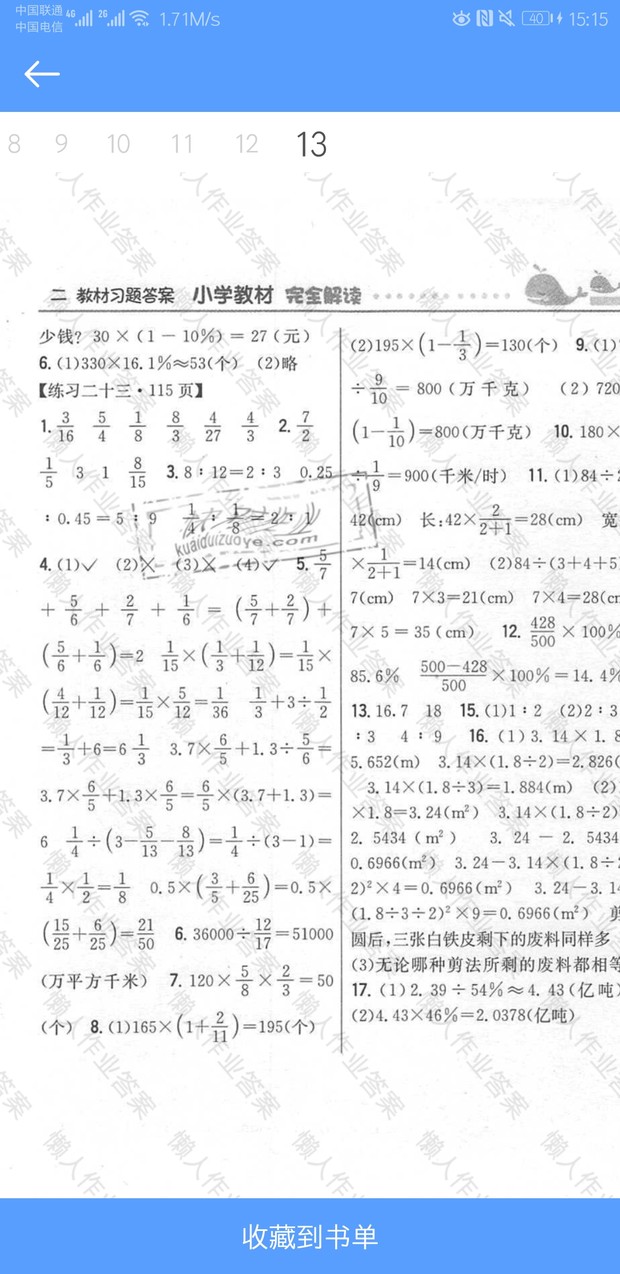 中国联通
中国电信
4G 2G 1.71M/s 40 15:15
8 9 10 11 12 13
二 教材习题答案 小学教材 完全解读
少钱? 30×(1-10%)=27(元)
6.(1)330×16.1%≈53(个) (2)略
【练习二十三·115页】
1. 3/16 5/4 1/8 8/3 4/27 4/3 2. 7/2
1/5 3 1 8/15 3. 8:12=2:3 0.25
:0.45=5:9 1/4:1/8=2:1
kuaiduizuoye.com
4.(1)✓ (2)× (3)× (4)✓ 5. 5/7
+5/6+2/7+1/6=(5/7+2/7)+
(5/6+1/6)=2 1/15×(1/3+1/12)=1/15×
(4/12+1/12)=1/15×5/12=1/36 1/3+3÷1/2
=1/3+6=6 1/3 3.7×6/5+1.3÷5/6=
3.7×6/5+1.3×6/5=6/5×(3.7+1.3)=
6 1/4÷(3-5/13-8/13)=1/4÷(3-1)=
1/4×1/2=1/8 0.5×(3/5+6/25)=0.5×
(15/25+6/25)=21/50 6. 36000÷12/17=51000
(万平方千米) 7. 120×5/8×2/3=50
(个) 8.(1)165×(1+2/11)=195(个)
(2)195×(1-1/3)=130(个) 9.(1)
÷9/10=800(万千克) (2)720
(1-1/10)=800(万千克) 10. 180×
÷1/9=900(千米/时) 11.(1)84÷2
42(cm) 长:42×2/2+1=28(cm) 宽
×1/2+1=14(cm) (2)84÷(3+4+5
7(cm) 7×3=21(cm) 7×4=28(cm
7×5=35(cm) 12. 428/500×100%
85.6% 500-428/500×100%=14.4%
13. 16.7 18 15.(1)1:2 (2)2:3
:3 4:9 16.(1)3.14×1.8
5.652(m) 3.14×(1.8÷2)=2.826(
3.14×(1.8÷3)=1.884(m) (2)
×1.8=3.24(m²) 3.14×(1.8÷2)
2.5434(m²) 3.24-2.5434
0.6966(m²) 3.24-3.14×(1.8÷
2)²×4=0.6966(m²) 3.24-3.14
(1.8÷3÷2)²×9=0.6966(m²) 剪
圆后,三张白铁皮剩下的废料同样多
(3)无论哪种剪法所剩的废料都相等
17.(1)2.39÷54%≈4.43(亿吨)
(2)4.43×46%=2.0378(亿吨)
懒人作业答案
收藏到书单